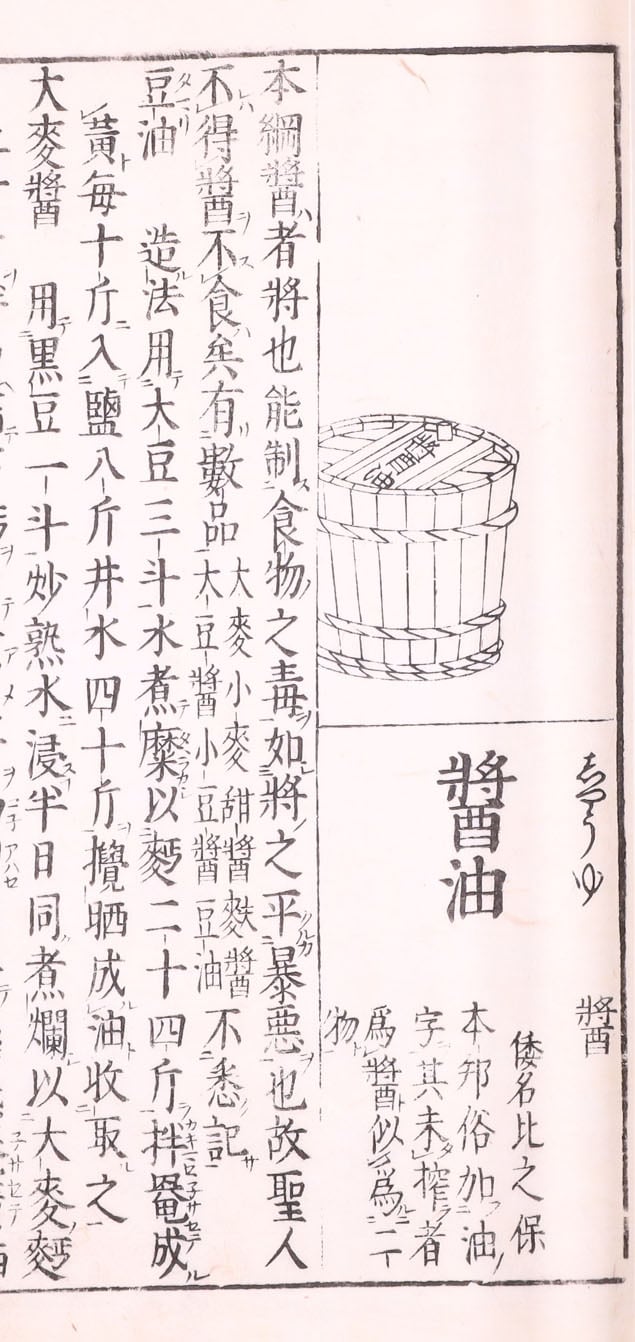 志やうゆ
醬
醬油
醬油
倭名比之保
本邦俗加油ノ
字其未搾者
爲醬似爲二
物
本綱醬者將也能制食物之毒如將之平暴惡也故聖人
不得醬不食矣有數品大麥小麥甜醬麩醬大豆醬小豆醬豆油不悉記
豆油 造法用大豆三斗水煮糜以麪二十四斤拌罨成
黃每十斤入鹽八斤井水四十斤攪晒成油收取之
大麥醬 用黑豆一斗炒熟水浸半日同煮爛以大麥麪